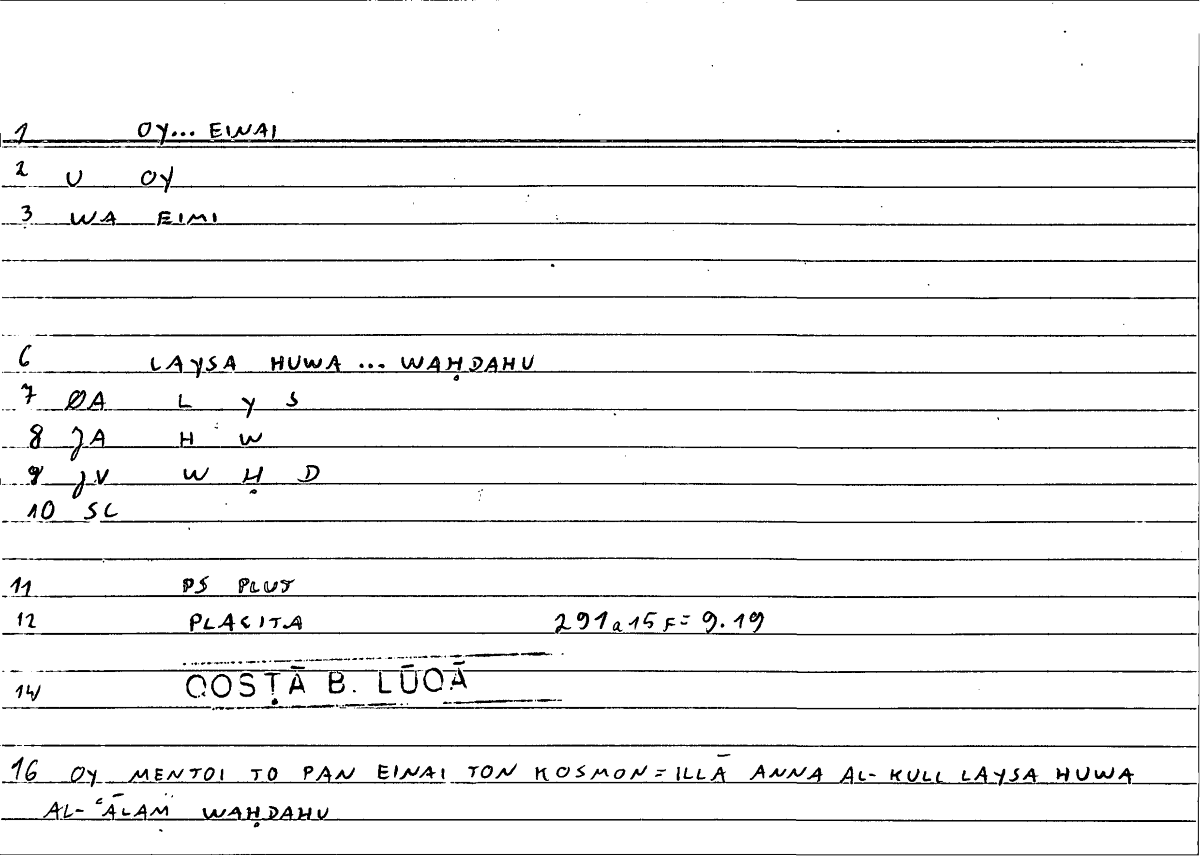 1 OY... EINAI
2 U OY
3 WA EIMI
6 LAYSA HUWA ... WAḤDAHU
7 ØA L Y S
8 JA H W
9 JV W Ḥ D
10 SC
11 PS PLUT
12 PLACITA 291a15F = 9.19
14 QOSṬĀ B. LŪQĀ
16 OY MENTOI TO PAN EINAI TON KOSMON = ILLĀ ANNA AL-KULL LAYSA HUWA
AL-ʿĀLAM WAḤDAHU